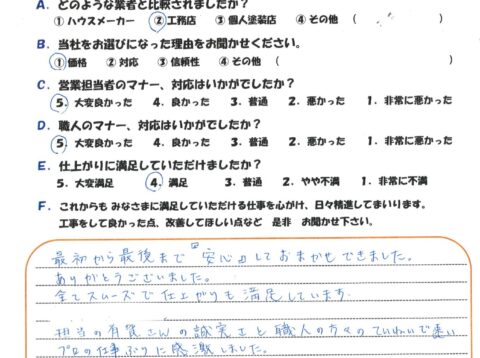 A. どのような業者と比較されましたか？
① ハウスメーカー ② 工務店 ③ 個人塗装店 ④ その他 （ ）
B. 当社をお選びになった理由をお聞かせください。
① 価格 ② 対応 ③ 信頼性 ④ その他 （ ）
C. 営業担当者のマナー、対応はいかがでしたか？
5．大変良かった 4．良かった 3．普通 2．悪かった 1．非常に悪かった
D. 職人のマナー、対応はいかがでしたか？
5．大変良かった 4．良かった 3．普通 2．悪かった 1．非常に悪かった
E. 仕上がりに満足していただけましたか？
5．大変満足 4．満足 3．普通 2．やや不満 1．非常に不満
F. これからも みなさまに満足していただける仕事を心がけ、日々精進してまいります。
工事をして良かった点、改善してほしい点など 是非 お聞かせ下さい。
最初から最後まで『安心』しておまかせできました。
ありがとうございました。
全てスムーズで仕上がりも満足しています。
担当の有賀さんの誠実さと職人の方々のていねいで速い
プロの仕事ぶりに感激しました。